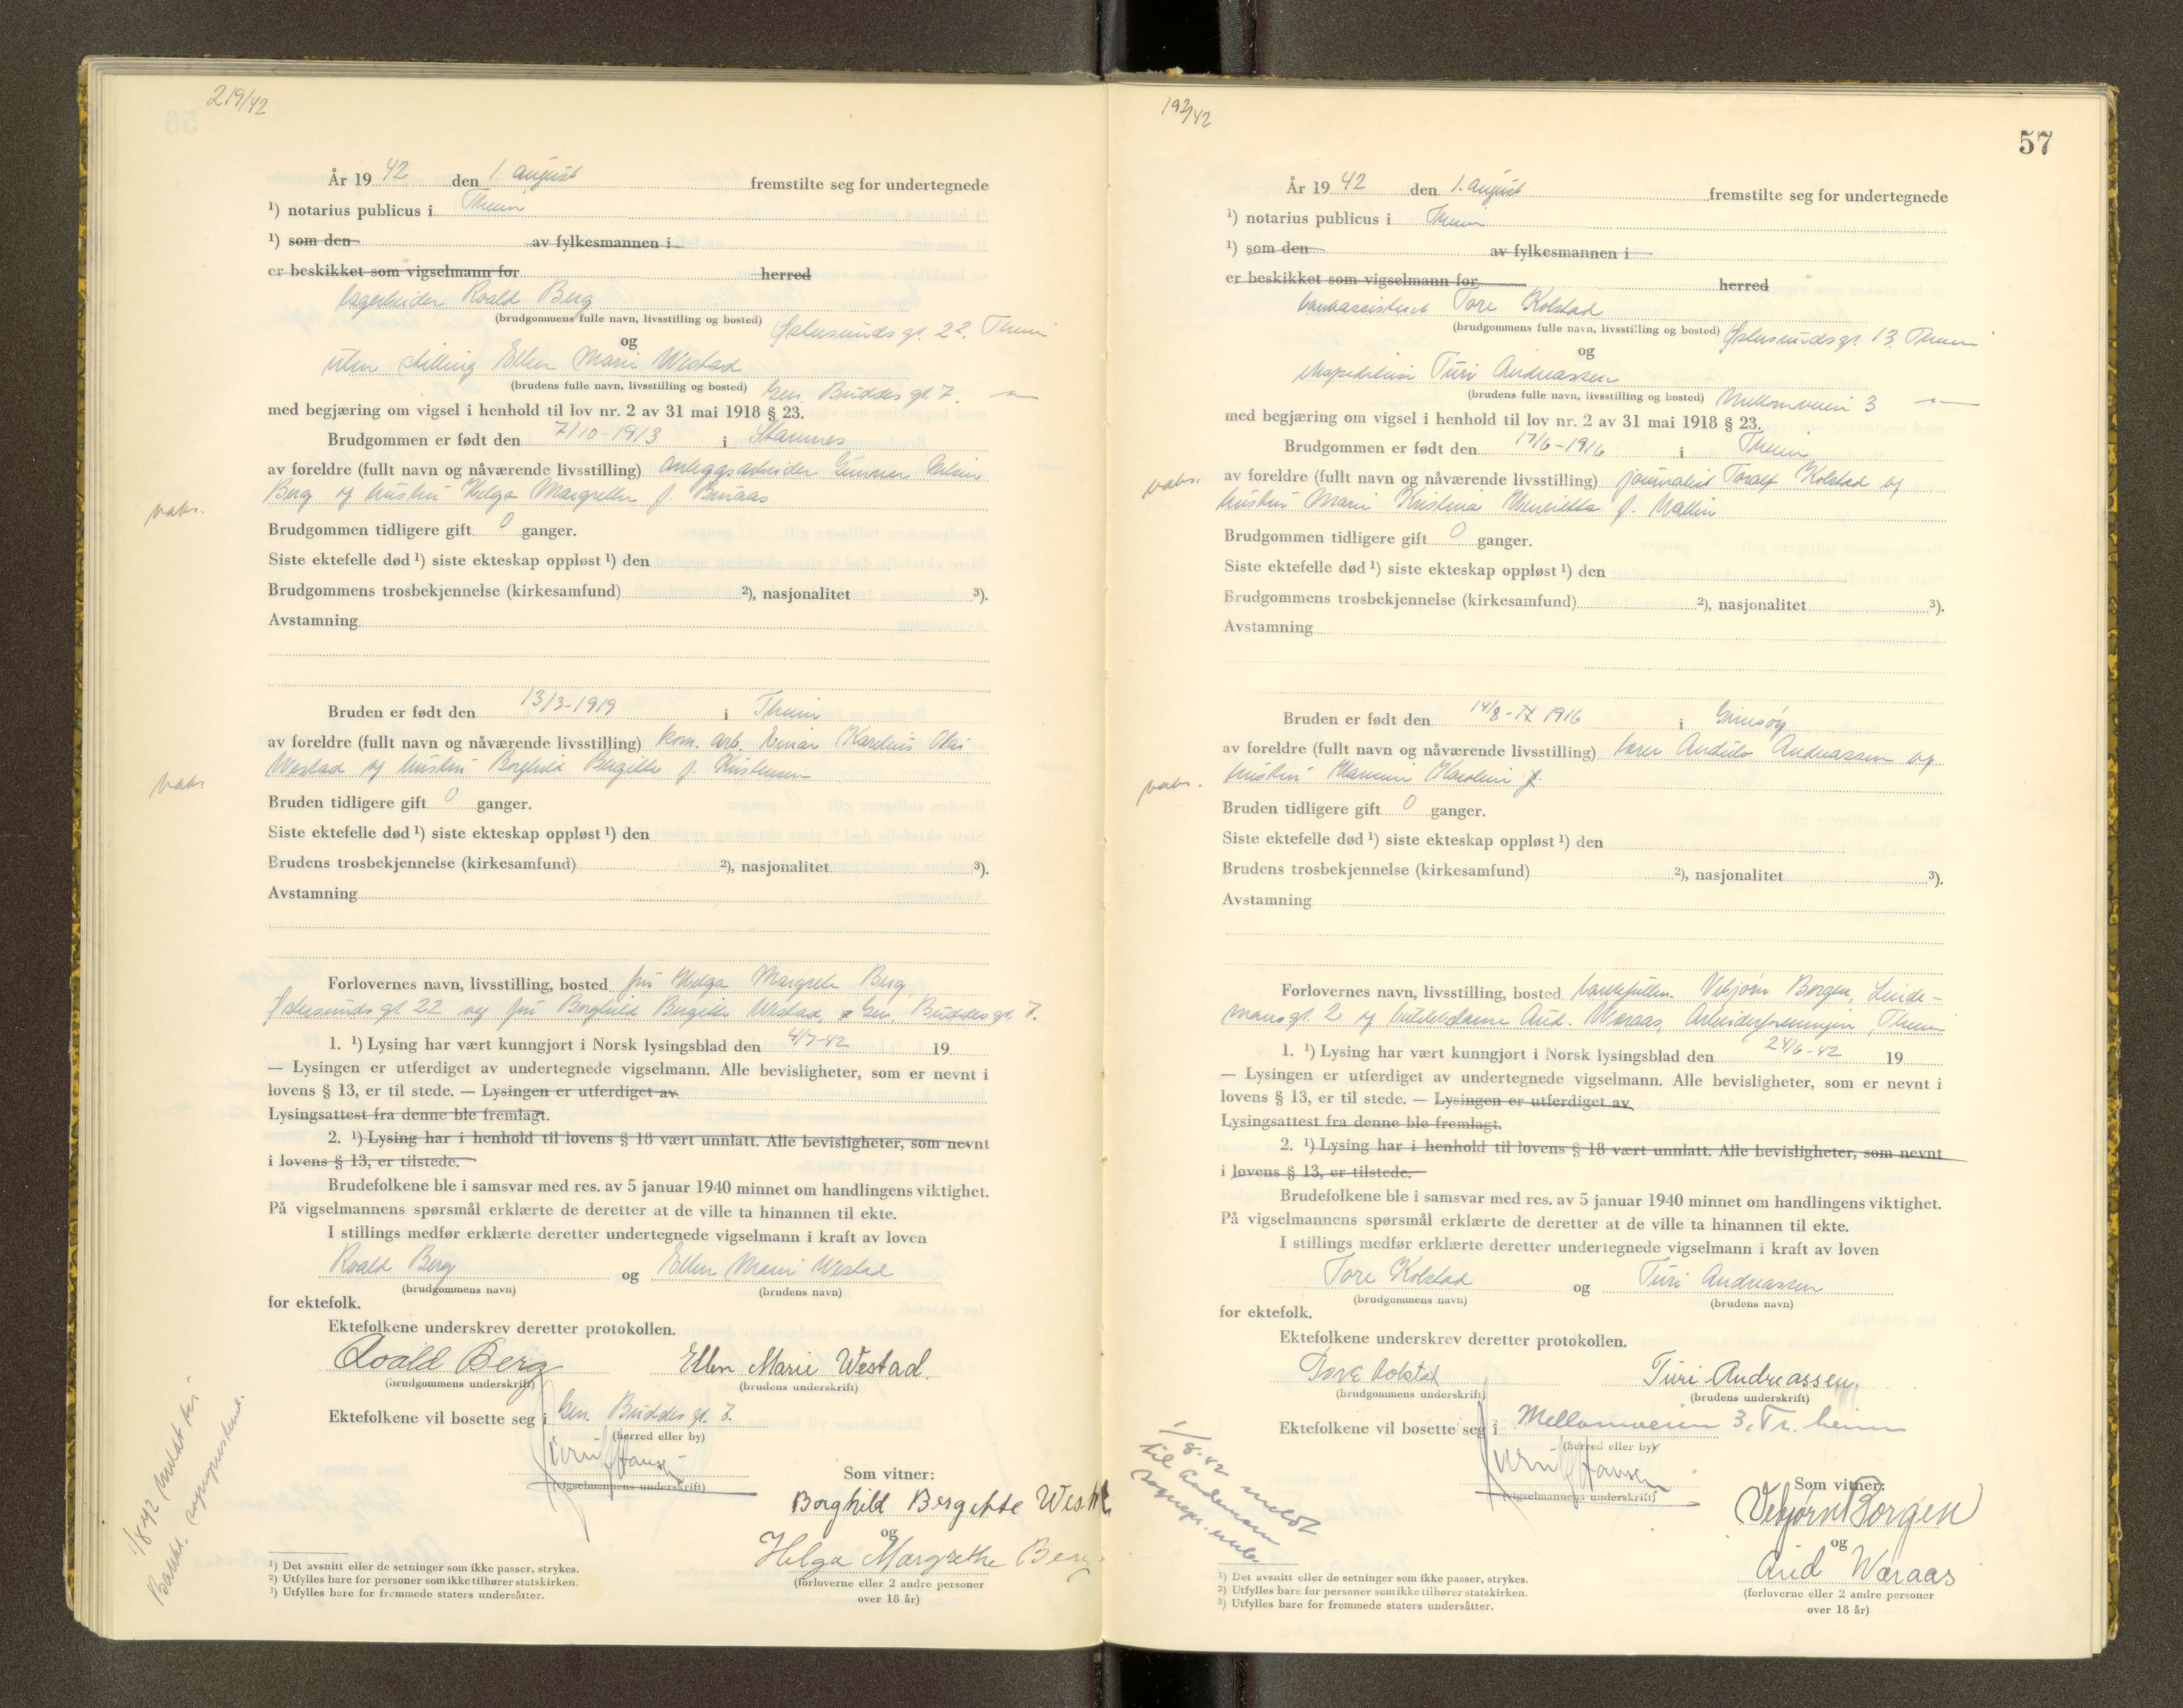 219/42
År 19 42 den 1. august fremstilte seg for undertegnede
¹) notarius publicus i Theim
¹) som den av fylkesmannen i
er beskikket som vigselmann for herred
lagerarbeider Roald Berg
(brudgommens fulle navn, livsstilling og bosted) Østersundsgt. 22. Theim
og
uten stilling Ellen Marie Westad
(brudens fulle navn, livsstilling og bosted) Gen. Buddes gt. 7.
med begjæring om vigsel i henhold til lov nr. 2 av 31 mai 1918 § 23.
Brudgommen er født den 7/10-1913 i Stamnes
av foreldre (fullt navn og nåværende livsstilling) anleggsarbeider Gunnar
Berg og hustru Helga Margrethe f.
vaks.
Brudgommen tidligere gift 0 ganger.
Siste ektefelle død ¹) siste ekteskap oppløst ¹) den
Brudgommens trosbekjennelse (kirkesamfund) ²), nasjonalitet ³).
Avstamning
Bruden er født den 13/3-1919 i Theim
av foreldre (fullt navn og nåværende livsstilling) kom. arb. Einar Karelius Olai
Westad og hustru Borghild Bergitte f. Kristensen
vaks.
Bruden tidligere gift 0 ganger.
Siste ektefelle død ¹) siste ekteskap oppløst ¹) den
Brudens trosbekjennelse (kirkesamfund) ²), nasjonalitet ³).
Avstamning
Forlovernes navn, livsstilling, bosted fru Helga Margrete Berg,
Østersundsgt. 22 og fru Borghild Bergitte Westad, Gen. Buddesgt. 7.
1. ¹) Lysing har vært kunngjort i Norsk lysingsblad den 4/7-42 19
— Lysingen er utferdiget av undertegnede vigselmann. Alle bevisligheter, som er nevnt i
lovens § 13, er til stede. — Lysingen er utferdiget av
Lysingsattest fra denne ble fremlagt.
2. ¹) Lysing har i henhold til lovens § 18 vært unnlatt. Alle bevisligheter, som nevnt
i lovens § 13, er tilstede.
Brudefolkene ble i samsvar med res. av 5 januar 1940 minnet om handlingens viktighet.
På vigselmannens spørsmål erklærte de deretter at de ville ta hinannen til ekte.
I stillings medfør erklærte deretter undertegnede vigselmann i kraft av loven
Roald Berg og Ellen Marie Westad
(brudgommens navn) (brudens navn)
for ektefolk.
Ektefolkene underskrev deretter protokollen.
Roald Berg Ellen Marie Westad.
(brudgommens underskrift) (brudens underskrift)
Ektefolkene vil bosette seg i Gen. Buddes gt. 7.
(herred eller by)
Hansen
(vigselmannens underskrift)
Som vitner:
Borghild Bergitte Westad
og
Helga Margrethe Berg
(forloverne eller 2 andre personer
over 18 år)
1/8 42 meldt til
Bakke sogneprestemb.
¹) Det avsnitt eller de setninger som ikke passer, strykes.
²) Utfylles bare for personer som ikke tilhører statskirken.
³) Utfylles bare for fremmede staters undersåtter.
192/42
57
År 19 42 den 1. august fremstilte seg for undertegnede
¹) notarius publicus i Theim
¹) som den av fylkesmannen i
er beskikket som vigselmann for herred
bankassistent Tore Kolstad
(brudgommens fulle navn, livsstilling og bosted) Østersundsgt. 13. Theim
og
ekspeditrise Turi Andreassen
(brudens fulle navn, livsstilling og bosted) Mellomveien 3
med begjæring om vigsel i henhold til lov nr. 2 av 31 mai 1918 § 23.
Brudgommen er født den 17/6-1916 i Theim
av foreldre (fullt navn og nåværende livsstilling) journalist Toralf Kolstad og
hustru Marie Kristina Henrietta f. Wallin
vaks.
Brudgommen tidligere gift 0 ganger.
Siste ektefelle død ¹) siste ekteskap oppløst ¹) den
Brudgommens trosbekjennelse (kirkesamfund) ²), nasjonalitet ³).
Avstamning
Bruden er født den 14/8 - 1916 i Gimsøy
av foreldre (fullt navn og nåværende livsstilling) lærer Andreassen og
hustru Karoline f.
vaks.
Bruden tidligere gift 0 ganger.
Siste ektefelle død ¹) siste ekteskap oppløst ¹) den
Brudens trosbekjennelse (kirkesamfund) ²), nasjonalitet ³).
Avstamning
Forlovernes navn, livsstilling, bosted bankfullm. Vebjørn Borgen, Linde-
mansgt. 2 og Aud. Wæraas, Arbeiderforeningen, Theim
1. ¹) Lysing har vært kunngjort i Norsk lysingsblad den 24/6-42 19
— Lysingen er utferdiget av undertegnede vigselmann. Alle bevisligheter, som er nevnt i
lovens § 13, er til stede. — Lysingen er utferdiget av
Lysingsattest fra denne ble fremlagt.
2. ¹) Lysing har i henhold til lovens § 18 vært unnlatt. Alle bevisligheter, som nevnt
i lovens § 13, er tilstede.
Brudefolkene ble i samsvar med res. av 5 januar 1940 minnet om handlingens viktighet.
På vigselmannens spørsmål erklærte de deretter at de ville ta hinannen til ekte.
I stillings medfør erklærte deretter undertegnede vigselmann i kraft av loven
Tore Kolstad og Turi Andreassen
(brudgommens navn) (brudens navn)
for ektefolk.
Ektefolkene underskrev deretter protokollen.
Tore Kolstad Turi Andreassen.
(brudgommens underskrift) (brudens underskrift)
Ektefolkene vil bosette seg i Mellomveien 3, Tr.heim
(herred eller by)
Hansen
(vigselmannens underskrift)
Som vitner:
Vebjørn Borgen
og
Aud Wæraas
(forloverne eller 2 andre personer
over 18 år)
1/8.42 meldt
til
sognepr. emb.
¹) Det avsnitt eller de setninger som ikke passer, strykes.
²) Utfylles bare for personer som ikke tilhører statskirken.
³) Utfylles bare for fremmede staters undersåtter.